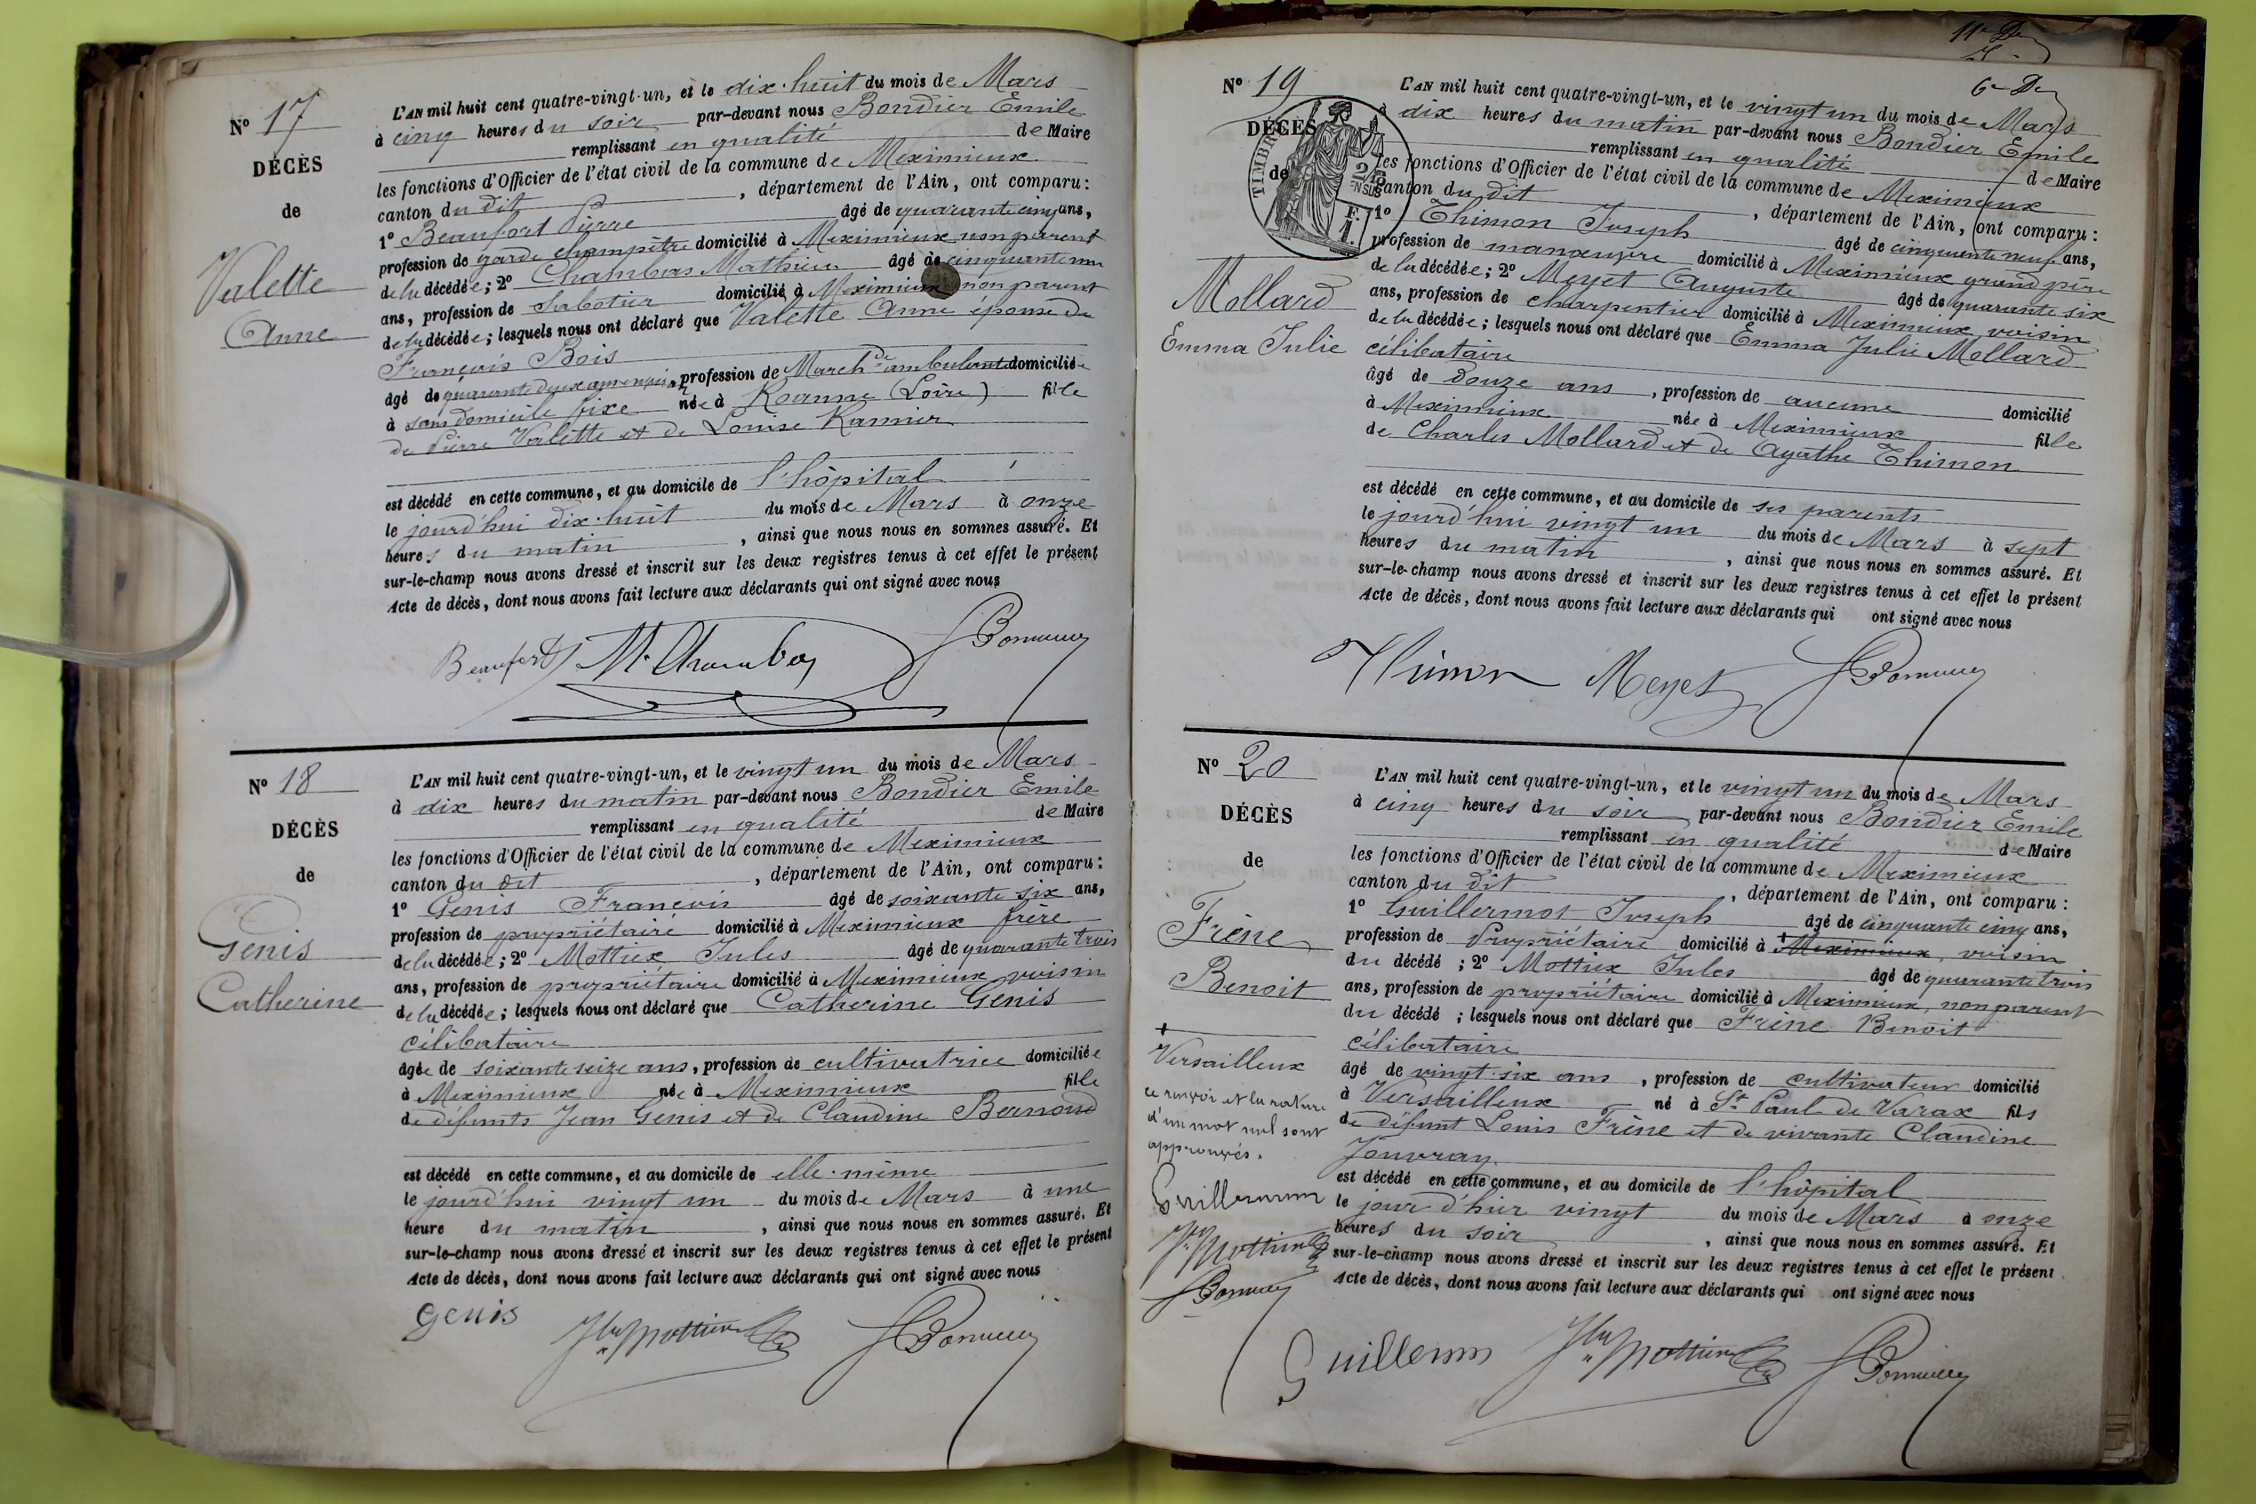 N° 17
DÉCÈS
de
Valette
Anne
L'AN mil huit cent quatre-vingt-un, et le dix-huit du mois de Mars
à cinq heures du soir par-devant nous Bondier Emile
remplissant en qualité de Maire
les fonctions d'Officier de l'état civil de la commune de Meximieux
canton du dit, département de l'Ain, ont comparu:
1° Beaufort Pierre âgé de quarante cinq ans,
profession de garde champêtre domicilié à Meximieux non parent
de la décédée; 2° Chambas Mathieu âgé de cinquante un
ans, profession de Sabotier domicilié à Meximieux non parent
de la décédée; lesquels nous ont déclaré que Valette Anne épouse de
François Bois
âgé de quarante deux ans environ, profession de March.de ambulante domiciliée
à sans domicile fixe née à Roanne (Loire) fille
de Pierre Valette et de Louise Ramier
est décédé en cette commune, et au domicile de l'hôpital
le jourd'hui dix-huit du mois de Mars à onze
heures du matin, ainsi que nous nous en sommes assuré. Et
sur-le-champ nous avons dressé et inscrit sur les deux registres tenus à cet effet le présent
Acte de décès, dont nous avons fait lecture aux déclarants qui ont signé avec nous
Beaufort M. Chambas
N° 18
DÉCÈS
de
Genis
Catherine
L'AN mil huit cent quatre-vingt-un, et le vingt un du mois de Mars
à dix heures du matin par-devant nous Bondier Emile
remplissant en qualité de Maire
les fonctions d'Officier de l'état civil de la commune de Meximieux
canton du dit, département de l'Ain, ont comparu:
1° Genis François âgé de soixante six ans,
profession de propriétaire domicilié à Meximieux frère
de la décédée; 2° Mottiex Jules âgé de quarante trois
ans, profession de propriétaire domicilié à Meximieux voisin
de la décédée; lesquels nous ont déclaré que Catherine Genis
célibataire
âgée de soixante seize ans, profession de cultivatrice domiciliée
à Meximieux née à Meximieux fille
de défunts Jean Genis et de Claudine Bernond
est décédé en cette commune, et au domicile de elle-même
le jourd'hui vingt un du mois de Mars à une
heure du matin, ainsi que nous nous en sommes assuré. Et
sur-le-champ nous avons dressé et inscrit sur les deux registres tenus à cet effet le présent
Acte de décès, dont nous avons fait lecture aux déclarants qui ont signé avec nous
Genis
6e
N° 19
DÉCÈS
de
TIMBRE
Mollard
Emma Julie
L'AN mil huit cent quatre-vingt-un, et le vingt un du mois de Mars
à dix heures du matin par-devant nous Bondier Emile
remplissant en qualité de Maire
les fonctions d'Officier de l'état civil de la commune de Meximieux
canton du dit, département de l'Ain, ont comparu:
1° Thimon Joseph âgé de cinquante neuf ans,
profession de manœuvre domicilié à Meximieux grand père
de la décédée; 2° Meyet Auguste âgé de quarante six
ans, profession de charpentier domicilié à Meximieux voisin
de la décédée; lesquels nous ont déclaré que Emma Julie Mollard
célibataire
âgé de douze ans, profession de aucune domicilié
à Meximieux née à Meximieux fille
de Charles Mollard et de Agathe Thimon
est décédé en cette commune, et au domicile de ses parents
le jourd'hui vingt un du mois de Mars à sept
heures du matin, ainsi que nous nous en sommes assuré. Et
sur-le-champ nous avons dressé et inscrit sur les deux registres tenus à cet effet le présent
Acte de décès, dont nous avons fait lecture aux déclarants qui ont signé avec nous
Thimon Meyet
N° 20
DÉCÈS
de
Frène
Benoit
L'AN mil huit cent quatre-vingt-un, et le vingt un du mois de Mars
à cinq heures du soir par-devant nous Bondier Emile
remplissant en qualité de Maire
les fonctions d'Officier de l'état civil de la commune de Meximieux
canton du dit, département de l'Ain, ont comparu:
1° Guillermos Joseph âgé de cinquante cinq ans,
profession de Propriétaire domicilié à + Meximieux, voisin
du décédé; 2° Mottiex Jules âgé de quarante trois
ans, profession de propriétaire domicilié à Meximieux, non parent
du décédé; lesquels nous ont déclaré que Frène Benoit
célibataire
âgé de vingt-six ans, profession de cultivateur domicilié
à Versailleux né à St Paul de Varax fils
de défunt Louis Frène et de vivante Claudine
Jouvray
est décédé en cette commune, et au domicile de l'hôpital
le jour d'hier vingt du mois de Mars à onze
heures du soir, ainsi que nous nous en sommes assuré. Et
sur-le-champ nous avons dressé et inscrit sur les deux registres tenus à cet effet le présent
Acte de décès, dont nous avons fait lecture aux déclarants qui ont signé avec nous
+
Versailleux
ce renvoi et la rature
d'un mot nul sont
approuvés.